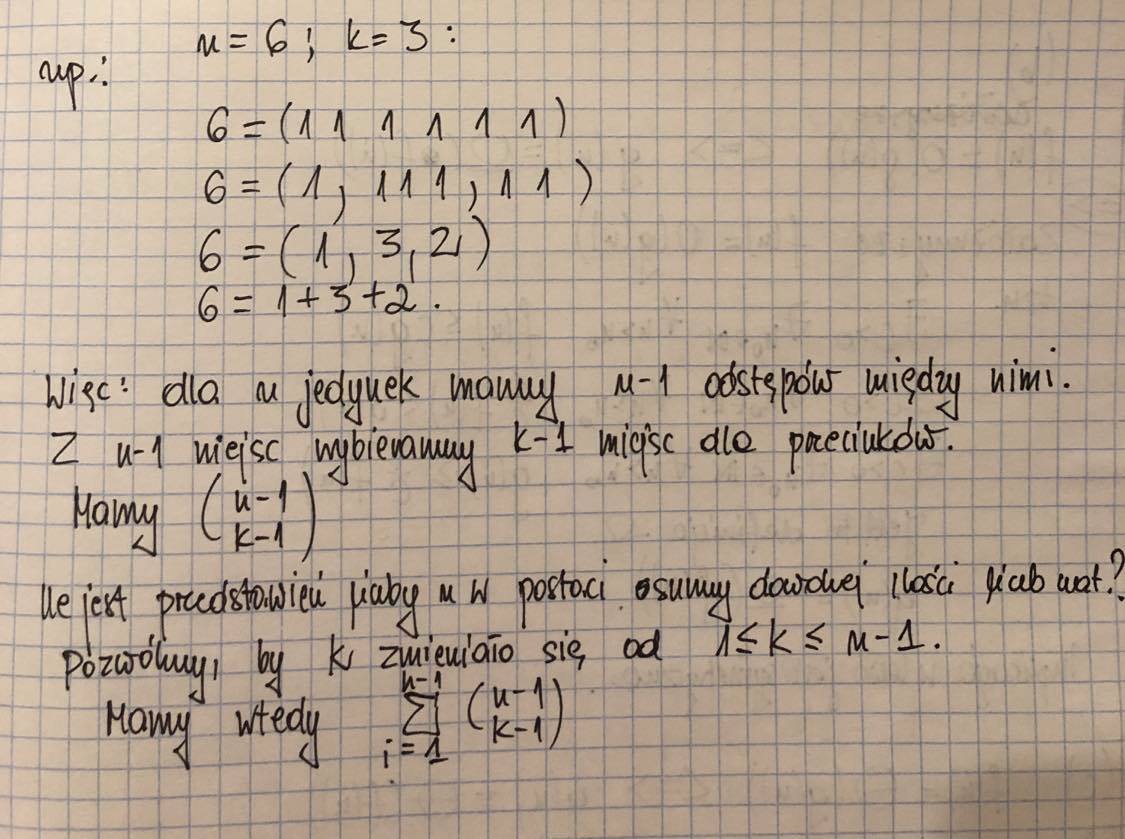 n = 6 ; k = 3 :
np.:
6 = (1 1 1 1 1 1)
6 = (1, 111, 11)
6 = (1, 3, 2)
6 = 1+3+2.
Więc: dla n jedynek mamy n-1 odstępów między nimi.
Z n-1 miejsc wybieramy k-1 miejsc dla przecinków.
Mamy (n-1 k-1)
Ile jest przedstawień liczby n w postaci sumy dowolnej ilości liczb nat.?
Pozwólmy, by k zmieniało się od 1 ≤ k ≤ n-1.
Mamy wtedy n-1 ∑ i=1 (n-1 k-1)